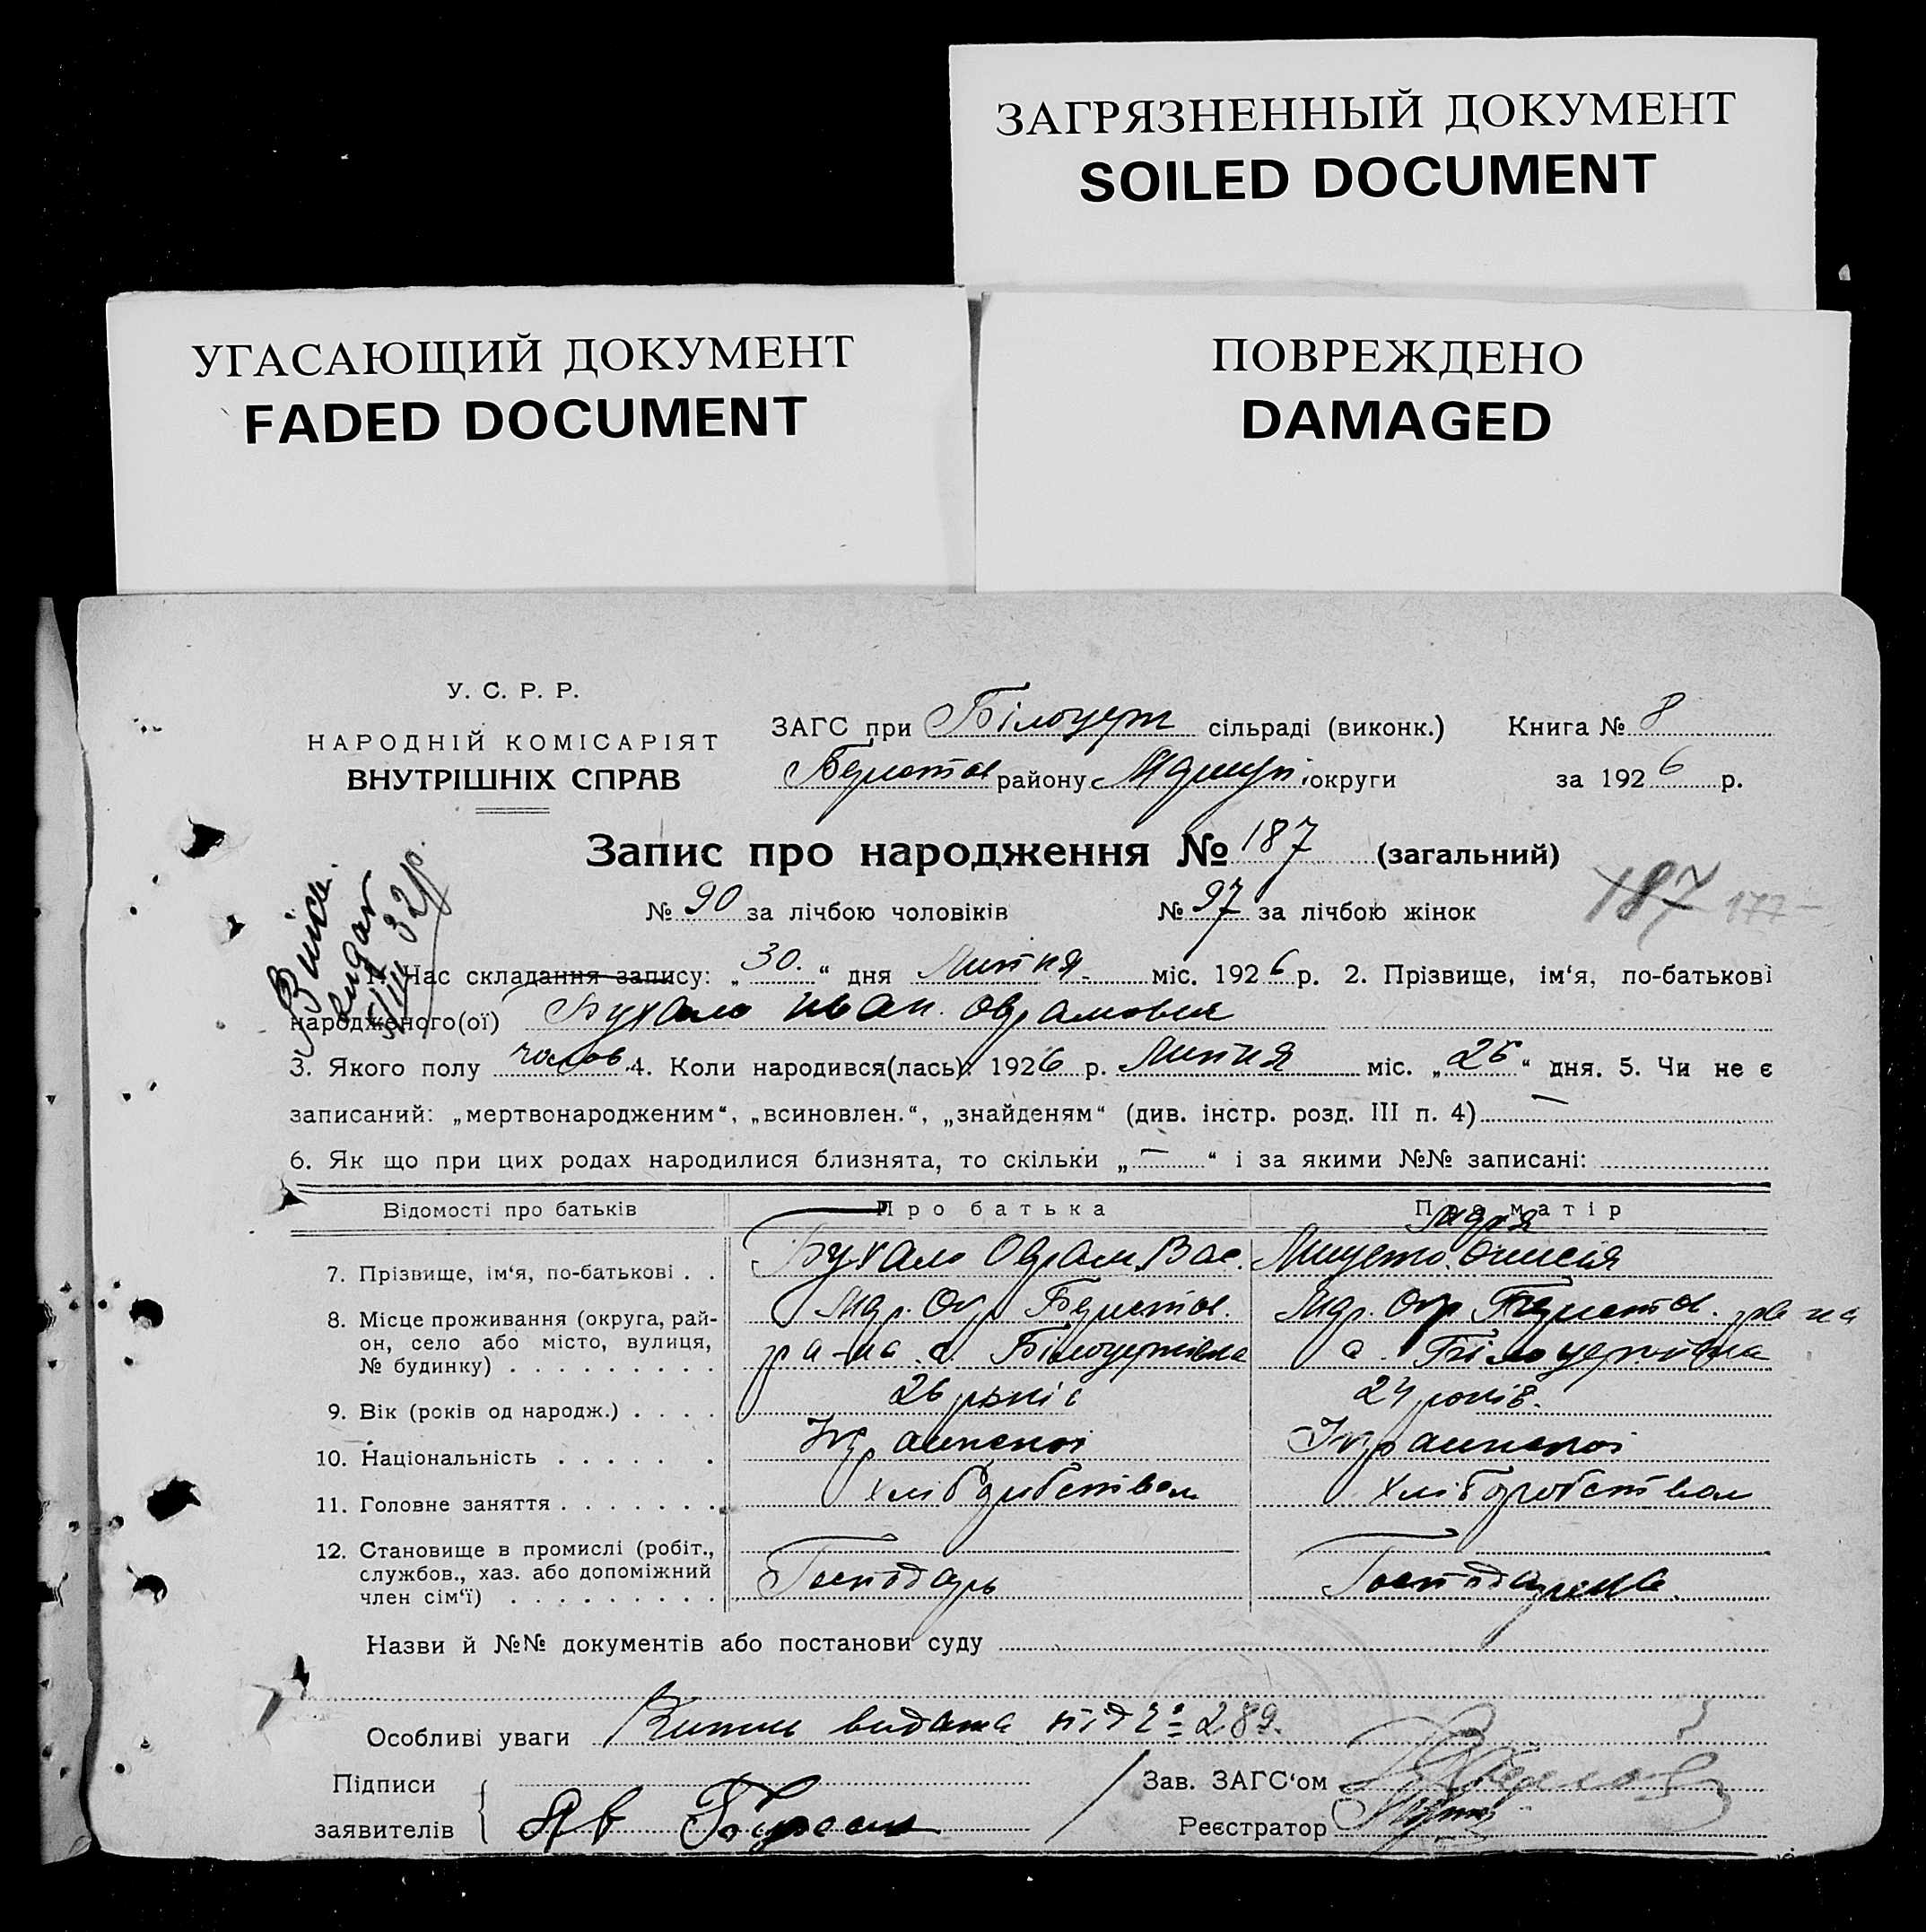 ЗАГРЯЗНЕННЫЙ ДОКУМЕНТ
SOILED DOCUMENT
УГАСАЮЩИЙ ДОКУМЕНТ
FADED DOCUMENT
ПОВРЕЖДЕНО
DAMAGED
У. С. Р. Р.
НАРОДНІЙ КОМІСАРІЯТ
ВНУТРІШНІХ СПРАВ
ЗАГС при Білоцерк сільраді (виконк.) Книга № 8
району округи за 1926 р.
Запис про народження № 187 (загальний)
№ 90 за лічбою чоловіків № 97 за лічбою жінок
187 177
1. Час складання запису: „30.“ дня Липня міс. 1926 р. 2. Прізвище, ім‘я, по-батькові
народженого(ої) Бухало Иван
3. Якого полу чолов. 4. Коли народився(лась): 1926 р. Липня міс. „25“ дня. 5. Чи не є
записаний: „мертвонародженим“, „всиновлен.“, „знайденям“ (див. інстр. розд. III п. 4) —
6. Як що при цих родах народилися близнята, то скільки „—“ і за якими №№ записані:
Відомості про батьків Про батька Про матір
7. Прізвище, ім‘я, по-батькові . . Бухало Вас.
8. Місце проживання (округа, рай-
он, село або місто, вулиця,
№ будинку)
ра-на с. Білоцерківка
с. Білоцерківка
9. Вік (років од народж.) 26 років 24 років.
10. Національність
11. Головне заняття Хліборобством Хліборобством
12. Становище в промислі (робіт.,
службов., хаз. або допоміжний
член сім‘ї)
Господарь
Назви й №№ документів або постанови суду
Особливі уваги видана під № 289.
Підписи
заявителів
Зав. ЗАГС‘ом
Реєстратор